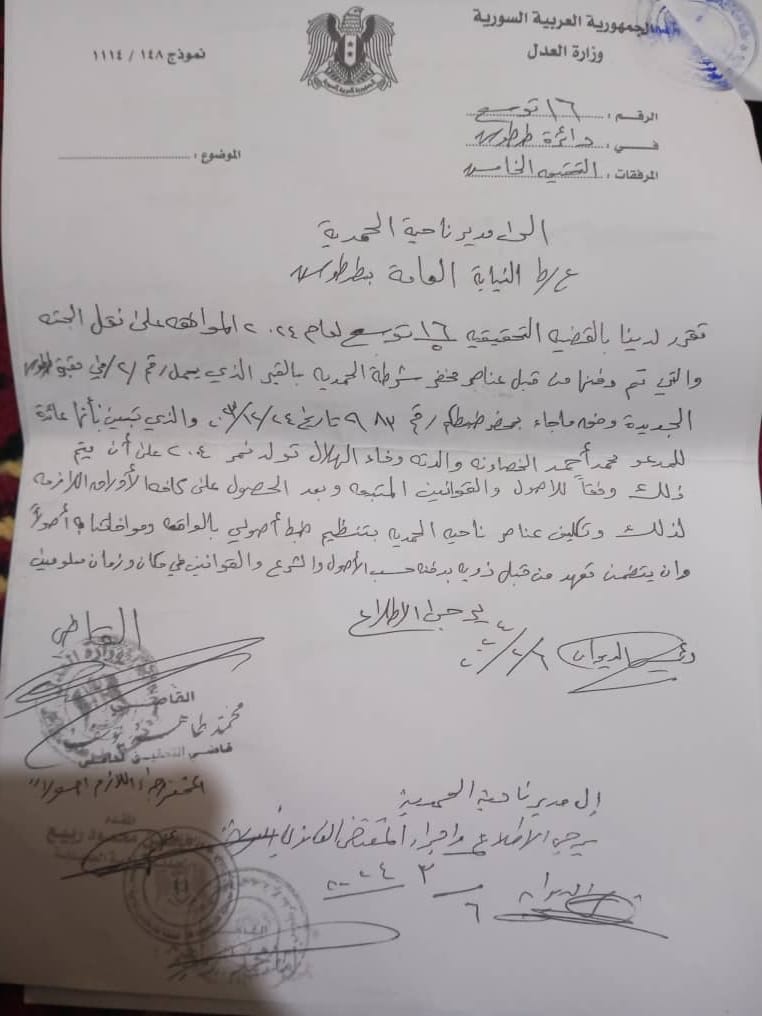 الجمهورية العربية السورية
وزارة العدل
نموذج ١٤٨ / ١١١٤
الرقم : ١٦ توسع
في : دائرة طرطوس
المرفقات : التحقيق الخامس
الموضوع :
الى مدير ناحية الحميدية
ع/ط النيابة العامة بطرطوس
تقرر لدينا بالقضيه التحقيقيه ١٦ توسع لعام ٢٠٢٤ الموافقه على نقل الجثه
والتي تم دفنها من قبل عناصر مخفر شرطة الحميديه بالقبر الذي يحمل رقم /٢/ في مقبرة طرطوس
الجديدة وفق ماجاء بمحضر ضبطكم رقم ٩٨٣ تاريخ ٢٤/١٢/ والذي تبين بأنها عائدة
للمدعو محمد أحمد والدته وفاء الهلال تولد ٢٠٠٤ على أن يتم
ذلك وفقاً للاصول والقوانين المتبعه وبعد الحصول على كافه الأوراق اللازمه
لذلك وتكليف عناصر ناحيه الحميديه بتنظيم ضبط أصولي بالواقعه وموافاتنا به أصولاً
وان يتضمن تعهد من قبل ذويه بدفنه حسب الأصول والشرع والقوانين في مكان وزمان معلومين
القاضي
يرجى الاطلاع
رئيس الديوان
القاضي
محمد طاهر
قاضي التحقيق
اللازم اصولا
إلى مدير ناحية الحميدية
المقدم
يرجى الاطلاع واجراء المقتضى القانوني
محمود ربيع
الديوان
٢٠٢٤